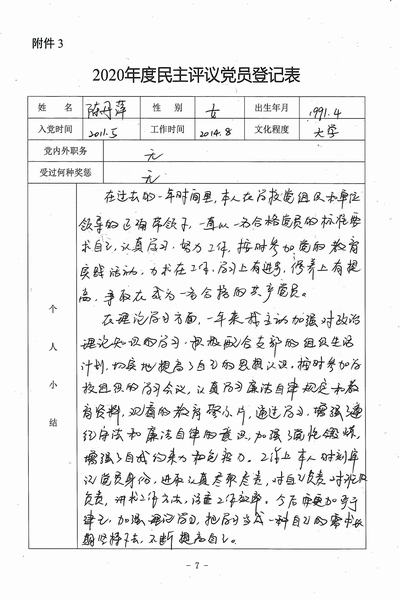 附件 3
2020年度民主评议党员登记表
姓 名 陈丹萍 性 别 女 出生年月 1991.4
入党时间 2011.5 工作时间 2014.8 文化程度 大学
党内外职务 无
受过何种奖惩 无
个人小结
在过去的一年时间里,本人在学校党组织和单位
领导的正确带领下,一直以一名合格党员的标准要
求自己,认真学习,努力工作,按时参加党的教育
实践活动,力求在工作、学习上有进步,修养上有提
高,争取在成为一名合格的共产党员。
在理论学习方面,一年来我主动加强对政治
理论知识的学习,积极配合支部的组织生活
计划,切实地提高了自己的思想认识。按时参加学
校组织的学习会议,认真学习廉洁自律规定和教
育资料,观看的教育警示片,通过学习,增强了遵
纪守法和廉洁自律的意识,加强了党性锻炼,
增强了自我约束力和免疫力。工作上本人时刻牢
记党员身份,进取认真尽职尽责,对自己负责对
负责,讲求工作方法,注重工作效率。今后要更加
律己,加强理论学习,把学习当成一种自己的需求
坚持下去,不断提高自己。
- 7 -